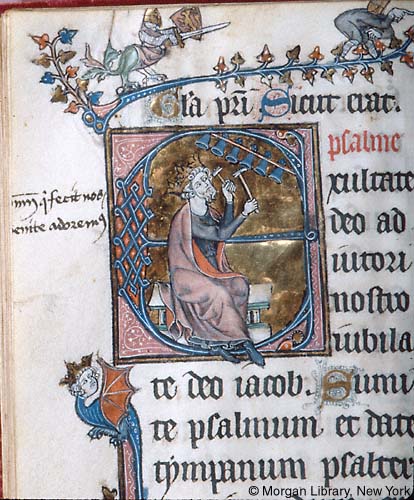 Gl̃a pr̃i Sicut erat.
psalme
Exultate
deo ad
iutori
nostro
iubila
te deo iacob. Sumi
te psalmum et date
tympanum psalter
fecit nos
enite adoremꝰ
© Morgan Library, New York